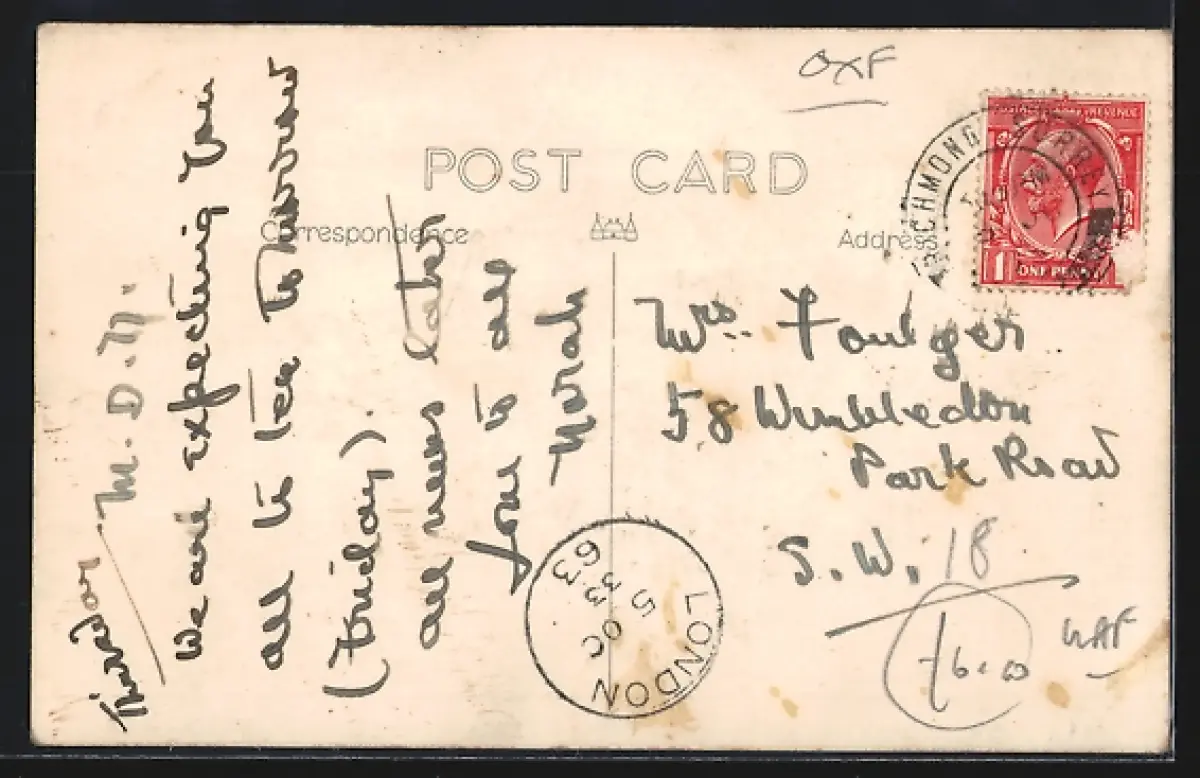 OXF
POST CARD
Correspondence
Address
Thursday
M.D.N.
We are expecting you
all to tea to-morrow
(Friday).
all news later
love to all
Norah
Mrs. Foulger
58 Wimbledon
Park Road
S.W. 18
RICHMOND SURREY
ONE PENNY
1
LONDON
5 OC
33
£6.00